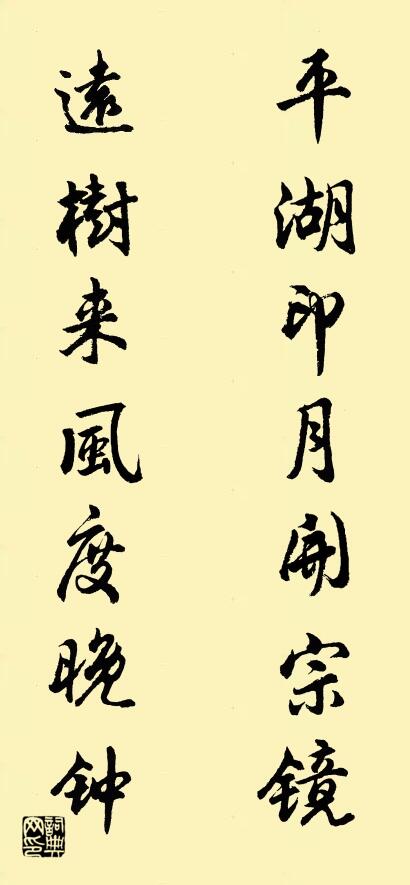 平湖印月開宗镜
遠樹来風度晚钟
詞典网印